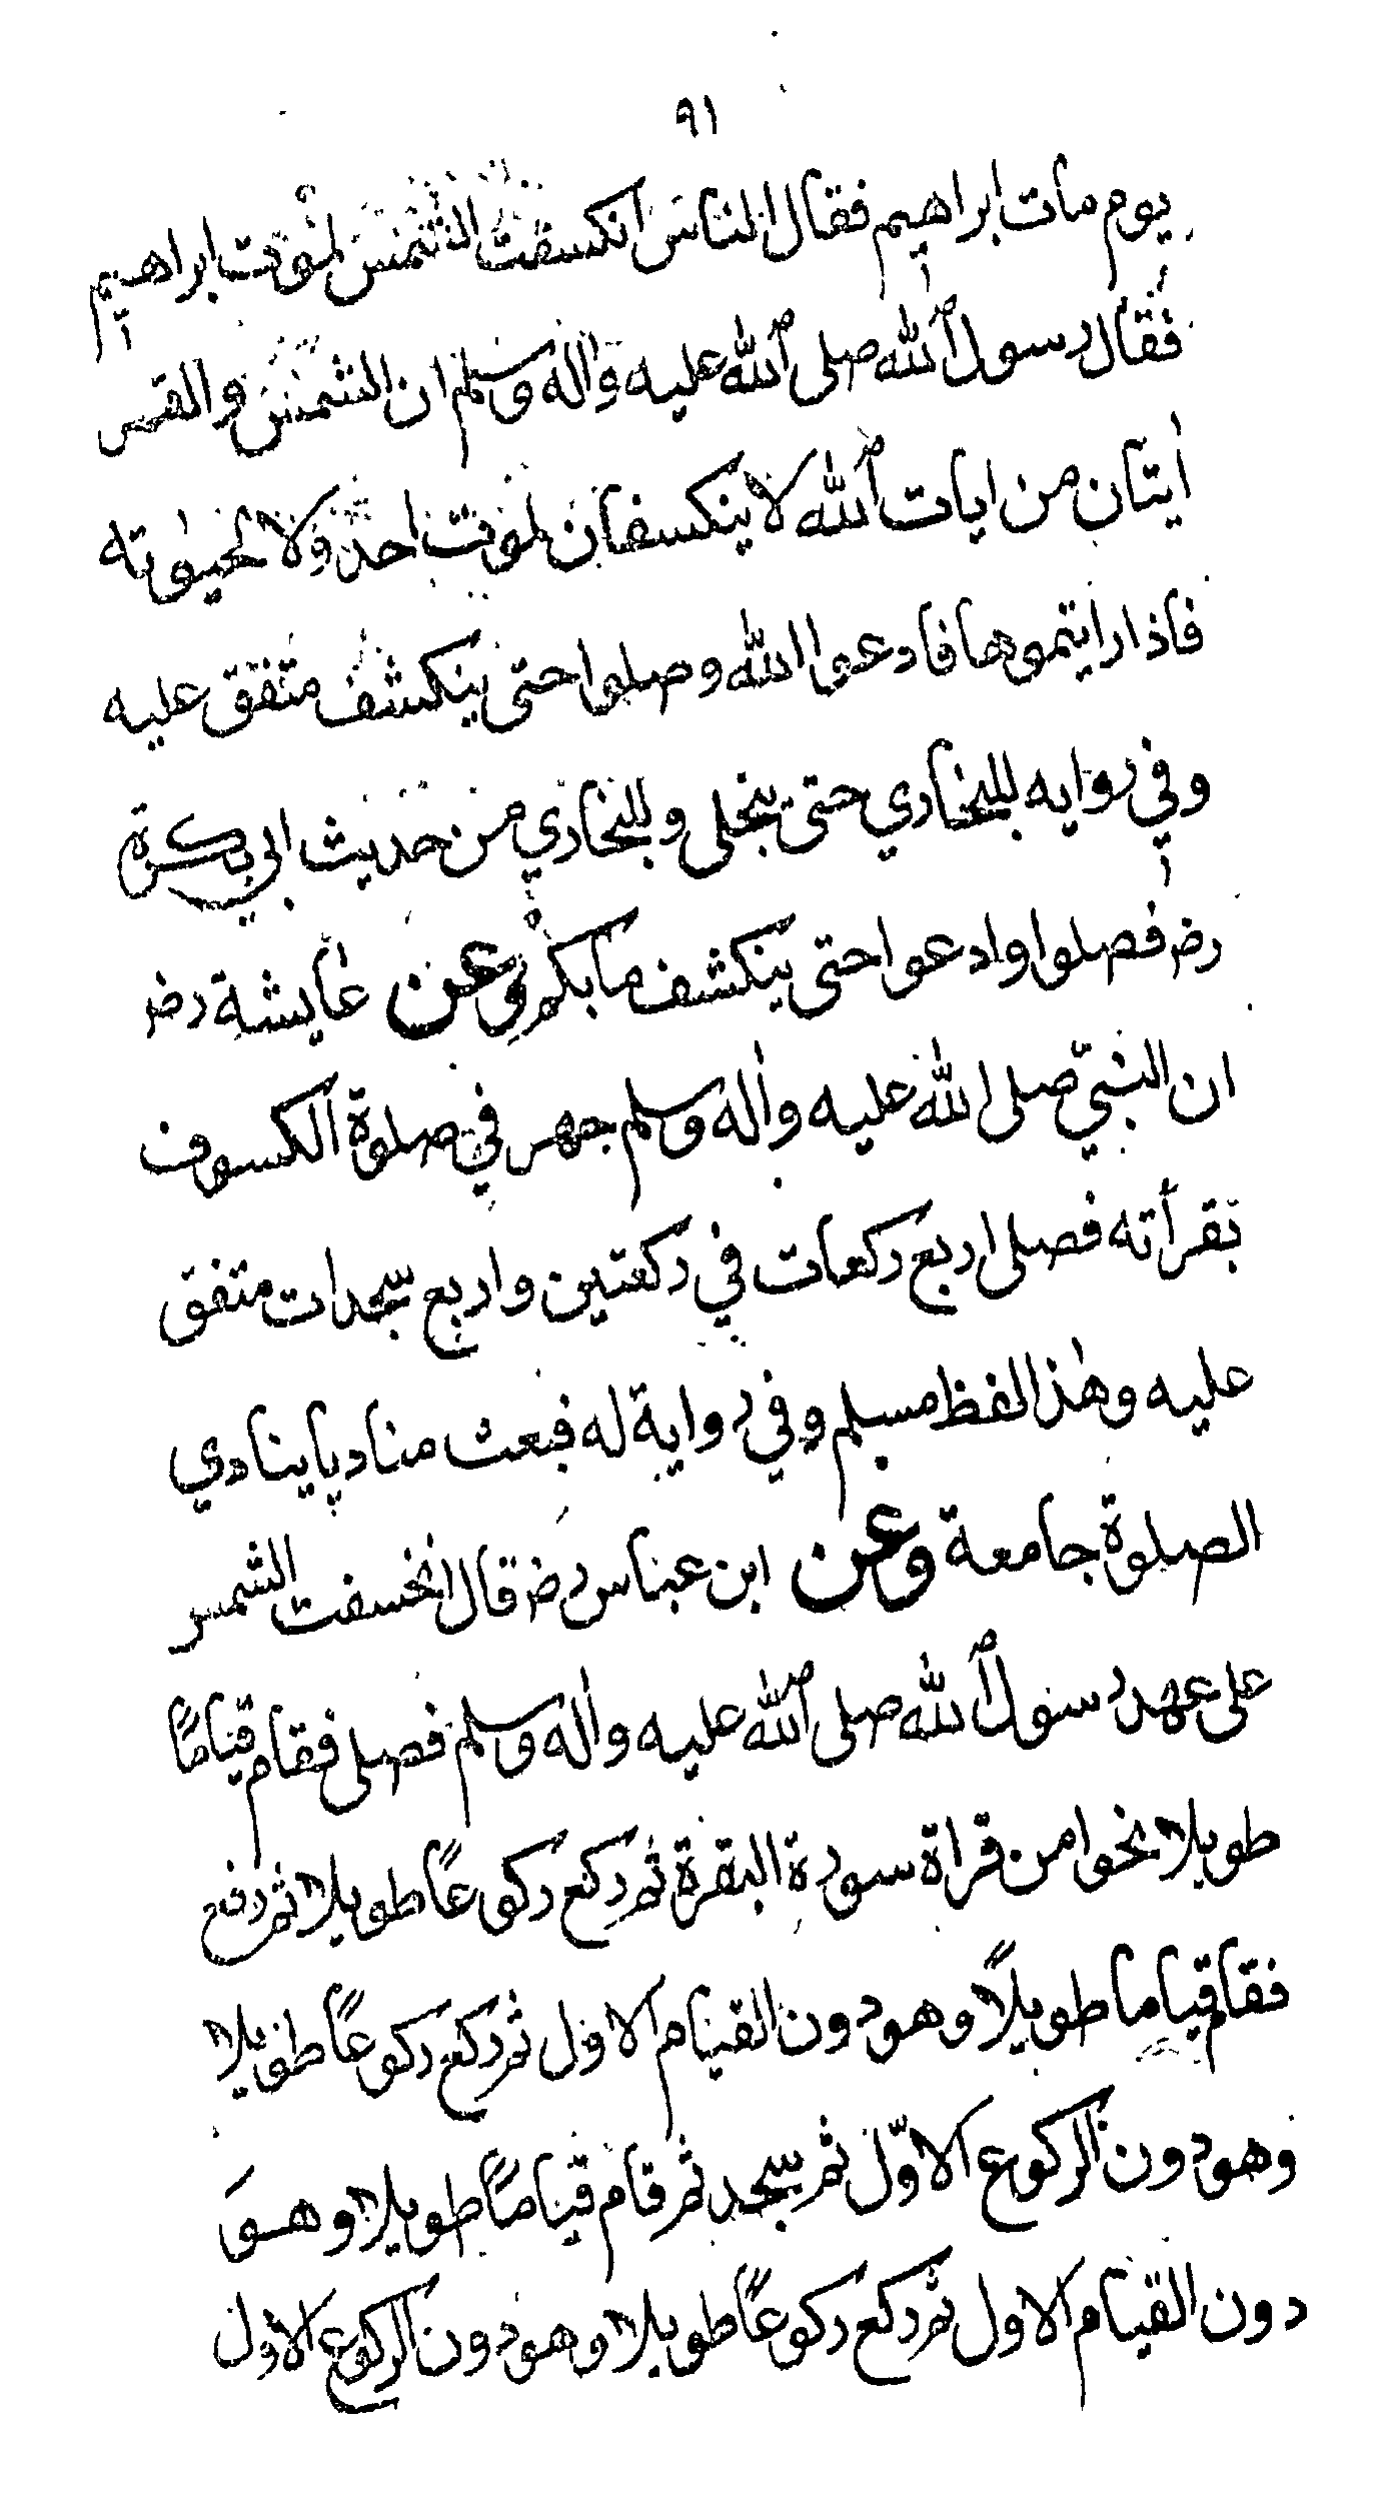 ٩١
يوم مات ابراهيم فقال الناس انكسفت الشمس لموت ابراهيم
فقال رسول الله صلى الله عليه واله وسلم ان الشمس والقمر
ايتان من ايات الله لا ينكسفان لموت احد ولا لحيوته
فاذا رايتموها فادعوا الله وصلوا حتى ينكشف متفق عليه
وفي روايه للبخاري حتى ينجلى وللبخاري من حديث ابي بكرة
رضر فصلوا وادعوا حتى ينكشف ما بكم وعن عايشة رضر
ان النبيّ صلى الله عليه واله وسلم جهر في صلوة الكسوف
بقرأته فصلى اربع ركعات في ركعتين واربع سجدات متفق
عليه وهذا لفظ مسلم وفي رواية له فبعث مناديا ينادي
الصلوة جامعة وعن ابن عباس رضر قال انخسفت الشمس
على عهد رسول الله صلى الله عليه واله وسلم فصلى فقام قياما
طويلا نحوا من قراة سورة البقرة ثم ركع ركوعاً طويلا ثم رفع
فقام قياما طويلاً وهو دون القيام الاول ثم ركع ركوعاً طويلا
وهو دون الركوع الاوّل ثم سجد ثم قام قياماً طويلا وهوَ
دون القيام الاول ثم ركع ركوعاً طويلا وهو دون الركوع الاول